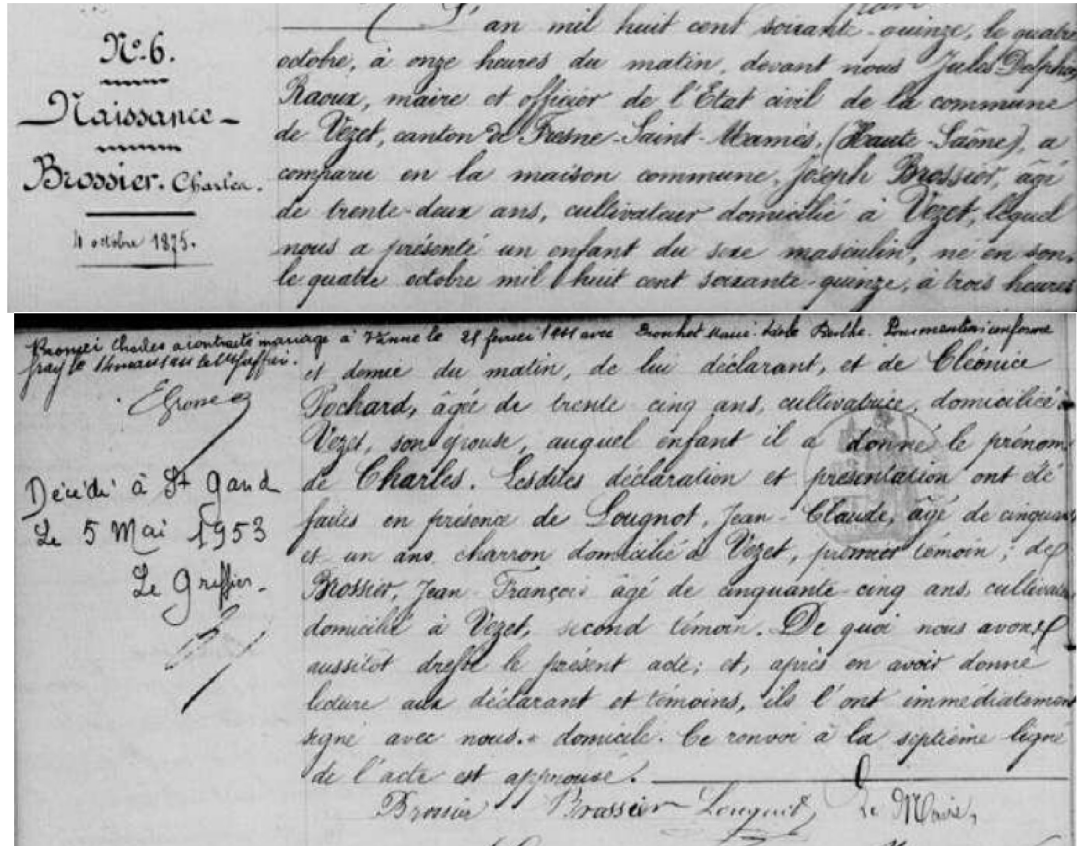 N° 6.
Naissance
Brossier. Charles.
4 octobre 1875.
L'an mil huit cent soixante-quinze, le quatre
octobre, à onze heures du matin, devant nous Jules Delphin
Raoux, maire et officier de l'Etat civil de la commune
de Vezet, canton de Fresne-Saint-Mamès, (Haute-Saône), a
comparu en la maison commune, Joseph Brossier, âgé
de trente-deux ans, cultivateur domicilié à Vezet, lequel
nous a présenté un enfant du sexe masculin, né en son
le quatre octobre mil huit cent soixante-quinze, à trois heures
Charles a contracté mariage à le 21 février avec Marie Berthe. Pour mention conforme
Décédé à St Gand
Le 5 Mai 1953
Le Greffier.
et demie du matin, de lui déclarant, et de Cléonice
Pochard, âgée de trente cinq ans, cultivatrice, domiciliée à
Vezet, son épouse, auquel enfant il a donné le prénom
de Charles. Lesdites déclaration et présentation ont été
faites en présence de Lougnot, Jean-Claude, âgé de cinquante
et un ans, charron domicilié à Vezet, premier témoin; de
Brossier, Jean-François âgé de cinquante-cinq ans, cultivateur
domicilié à Vezet, second témoin. De quoi nous avons
aussitôt dressé le présent acte; et, après en avoir donné
lecture aux déclarant et témoins, ils l'ont immédiatement
signé avec nous. domicile. Ce renvoi à la septième ligne
de l'acte est approuvé.
Brossier Brossier Lougnot Le Maire,